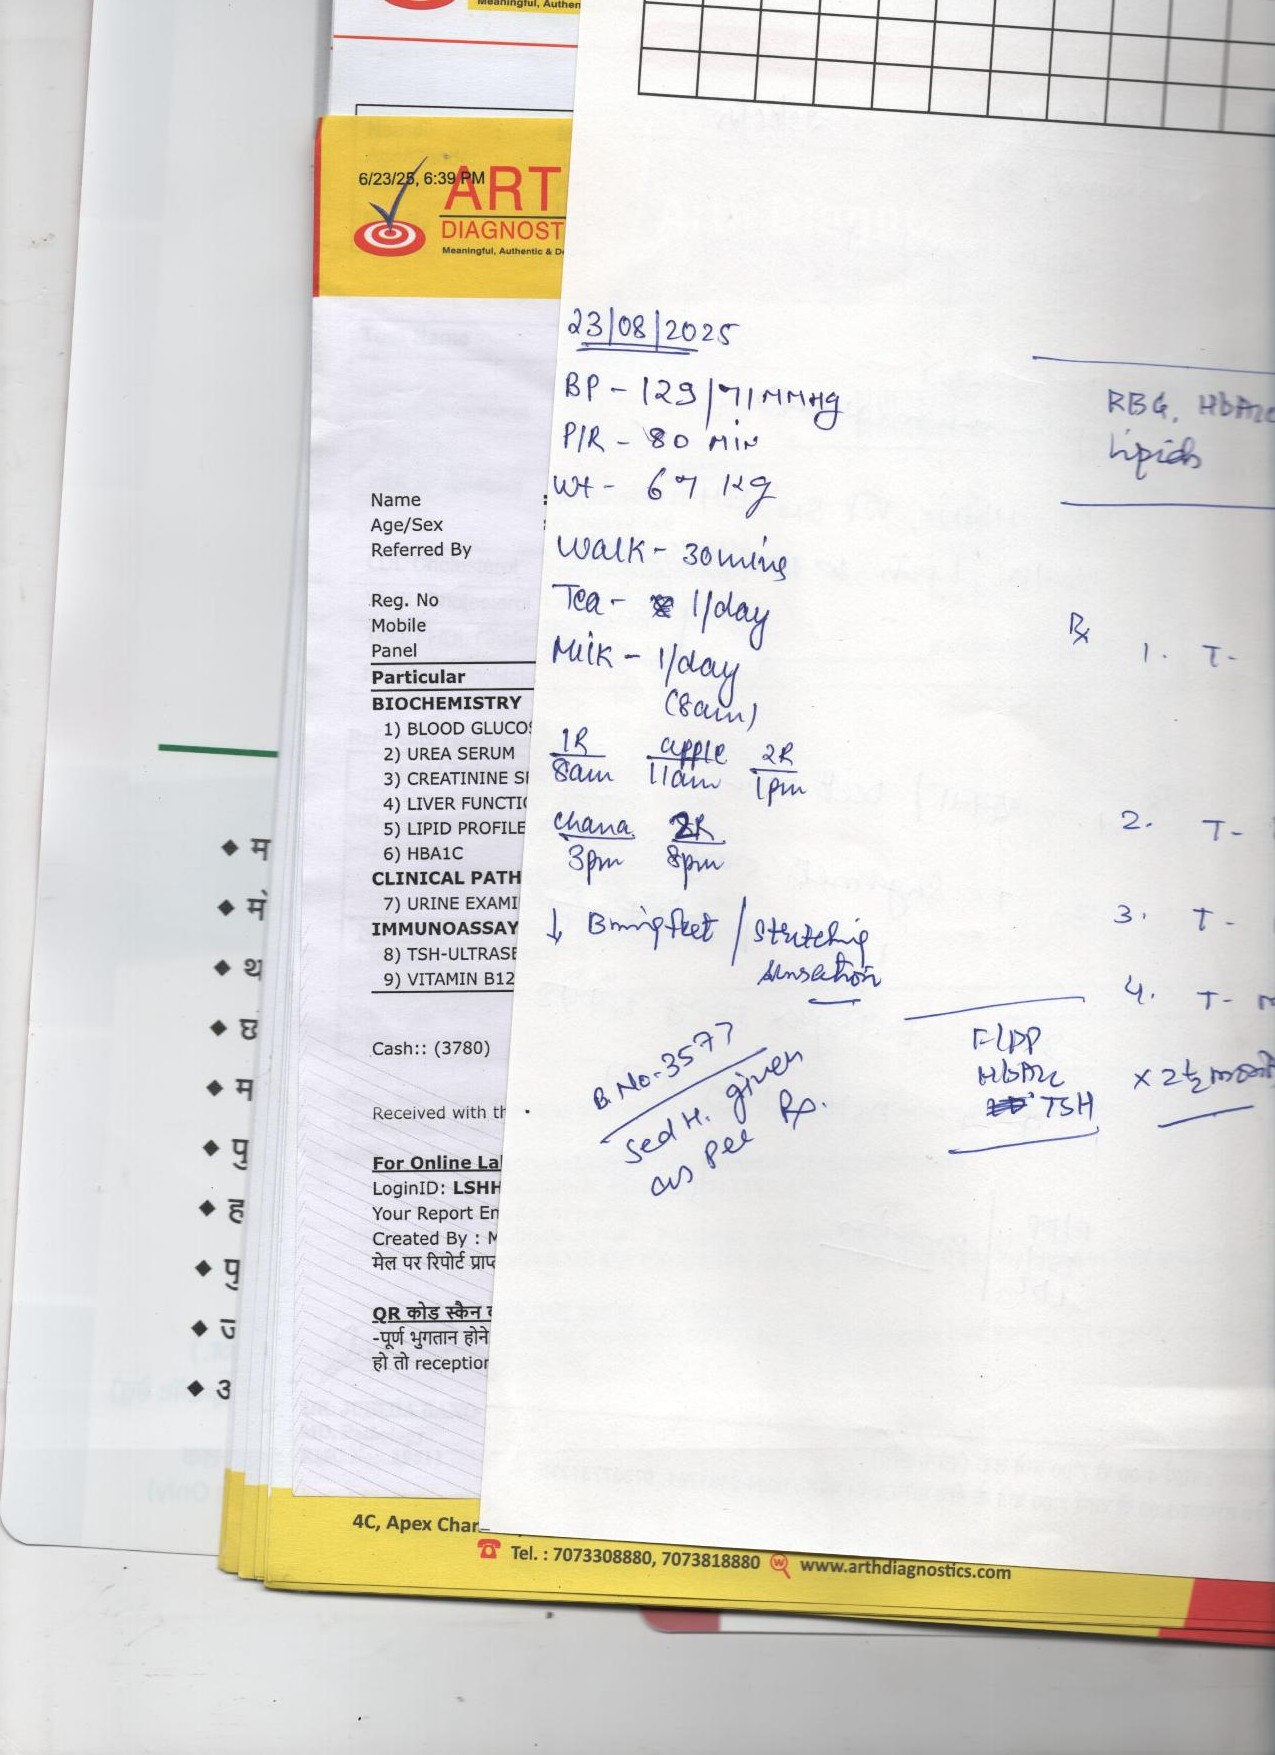 Meaningful, Authen
6/23/25, 6:39 PM
ART
DIAGNOST
Meaningful, Authentic & D
Name :
Age/Sex :
Referred By
Reg. No
Mobile
Panel
Particular
BIOCHEMISTRY
1) BLOOD GLUCO
2) UREA SERUM
3) CREATININE S
4) LIVER FUNCTI
5) LIPID PROFILE
6) HBA1C
CLINICAL PATH
7) URINE EXAMI
IMMUNOASSAY
8) TSH-ULTRASE
9) VITAMIN B12
Cash:: (3780)
Received with th
For Online La
LoginID: LSHH
Your Report En
Created By : M
मेल पर रिपोर्ट प्राप्त
QR कोड स्कैन
-पूर्ण भुगतान होने
हो तो reception
23/08/2025
BP - 129/71 MMHg
P/R - 80 MIN
Wt - 67 Kg
Walk - 30mins
Tea - 1/day
Milk - 1/day
(8am)
1R apple 2R
8am 11am 1pm
chana 2R
3pm 8pm
↓ Burning feet / Stretching
sensation
B. No. 3577
Sed H. given
as per Rx.
RBG, HbA1c
Lipids
Rx
1. T-
2. T-
3. T-
4. T- M
F/PP
HbA1c
TSH
x 2½ mont
◆ म
◆ म
◆ थ
◆ छ
◆ म
◆ पु
◆ ह
◆ पु
◆ ज
◆ अ
4C, Apex Cham
Tel. : 7073308880, 7073818880 www.arthdiagnostics.com